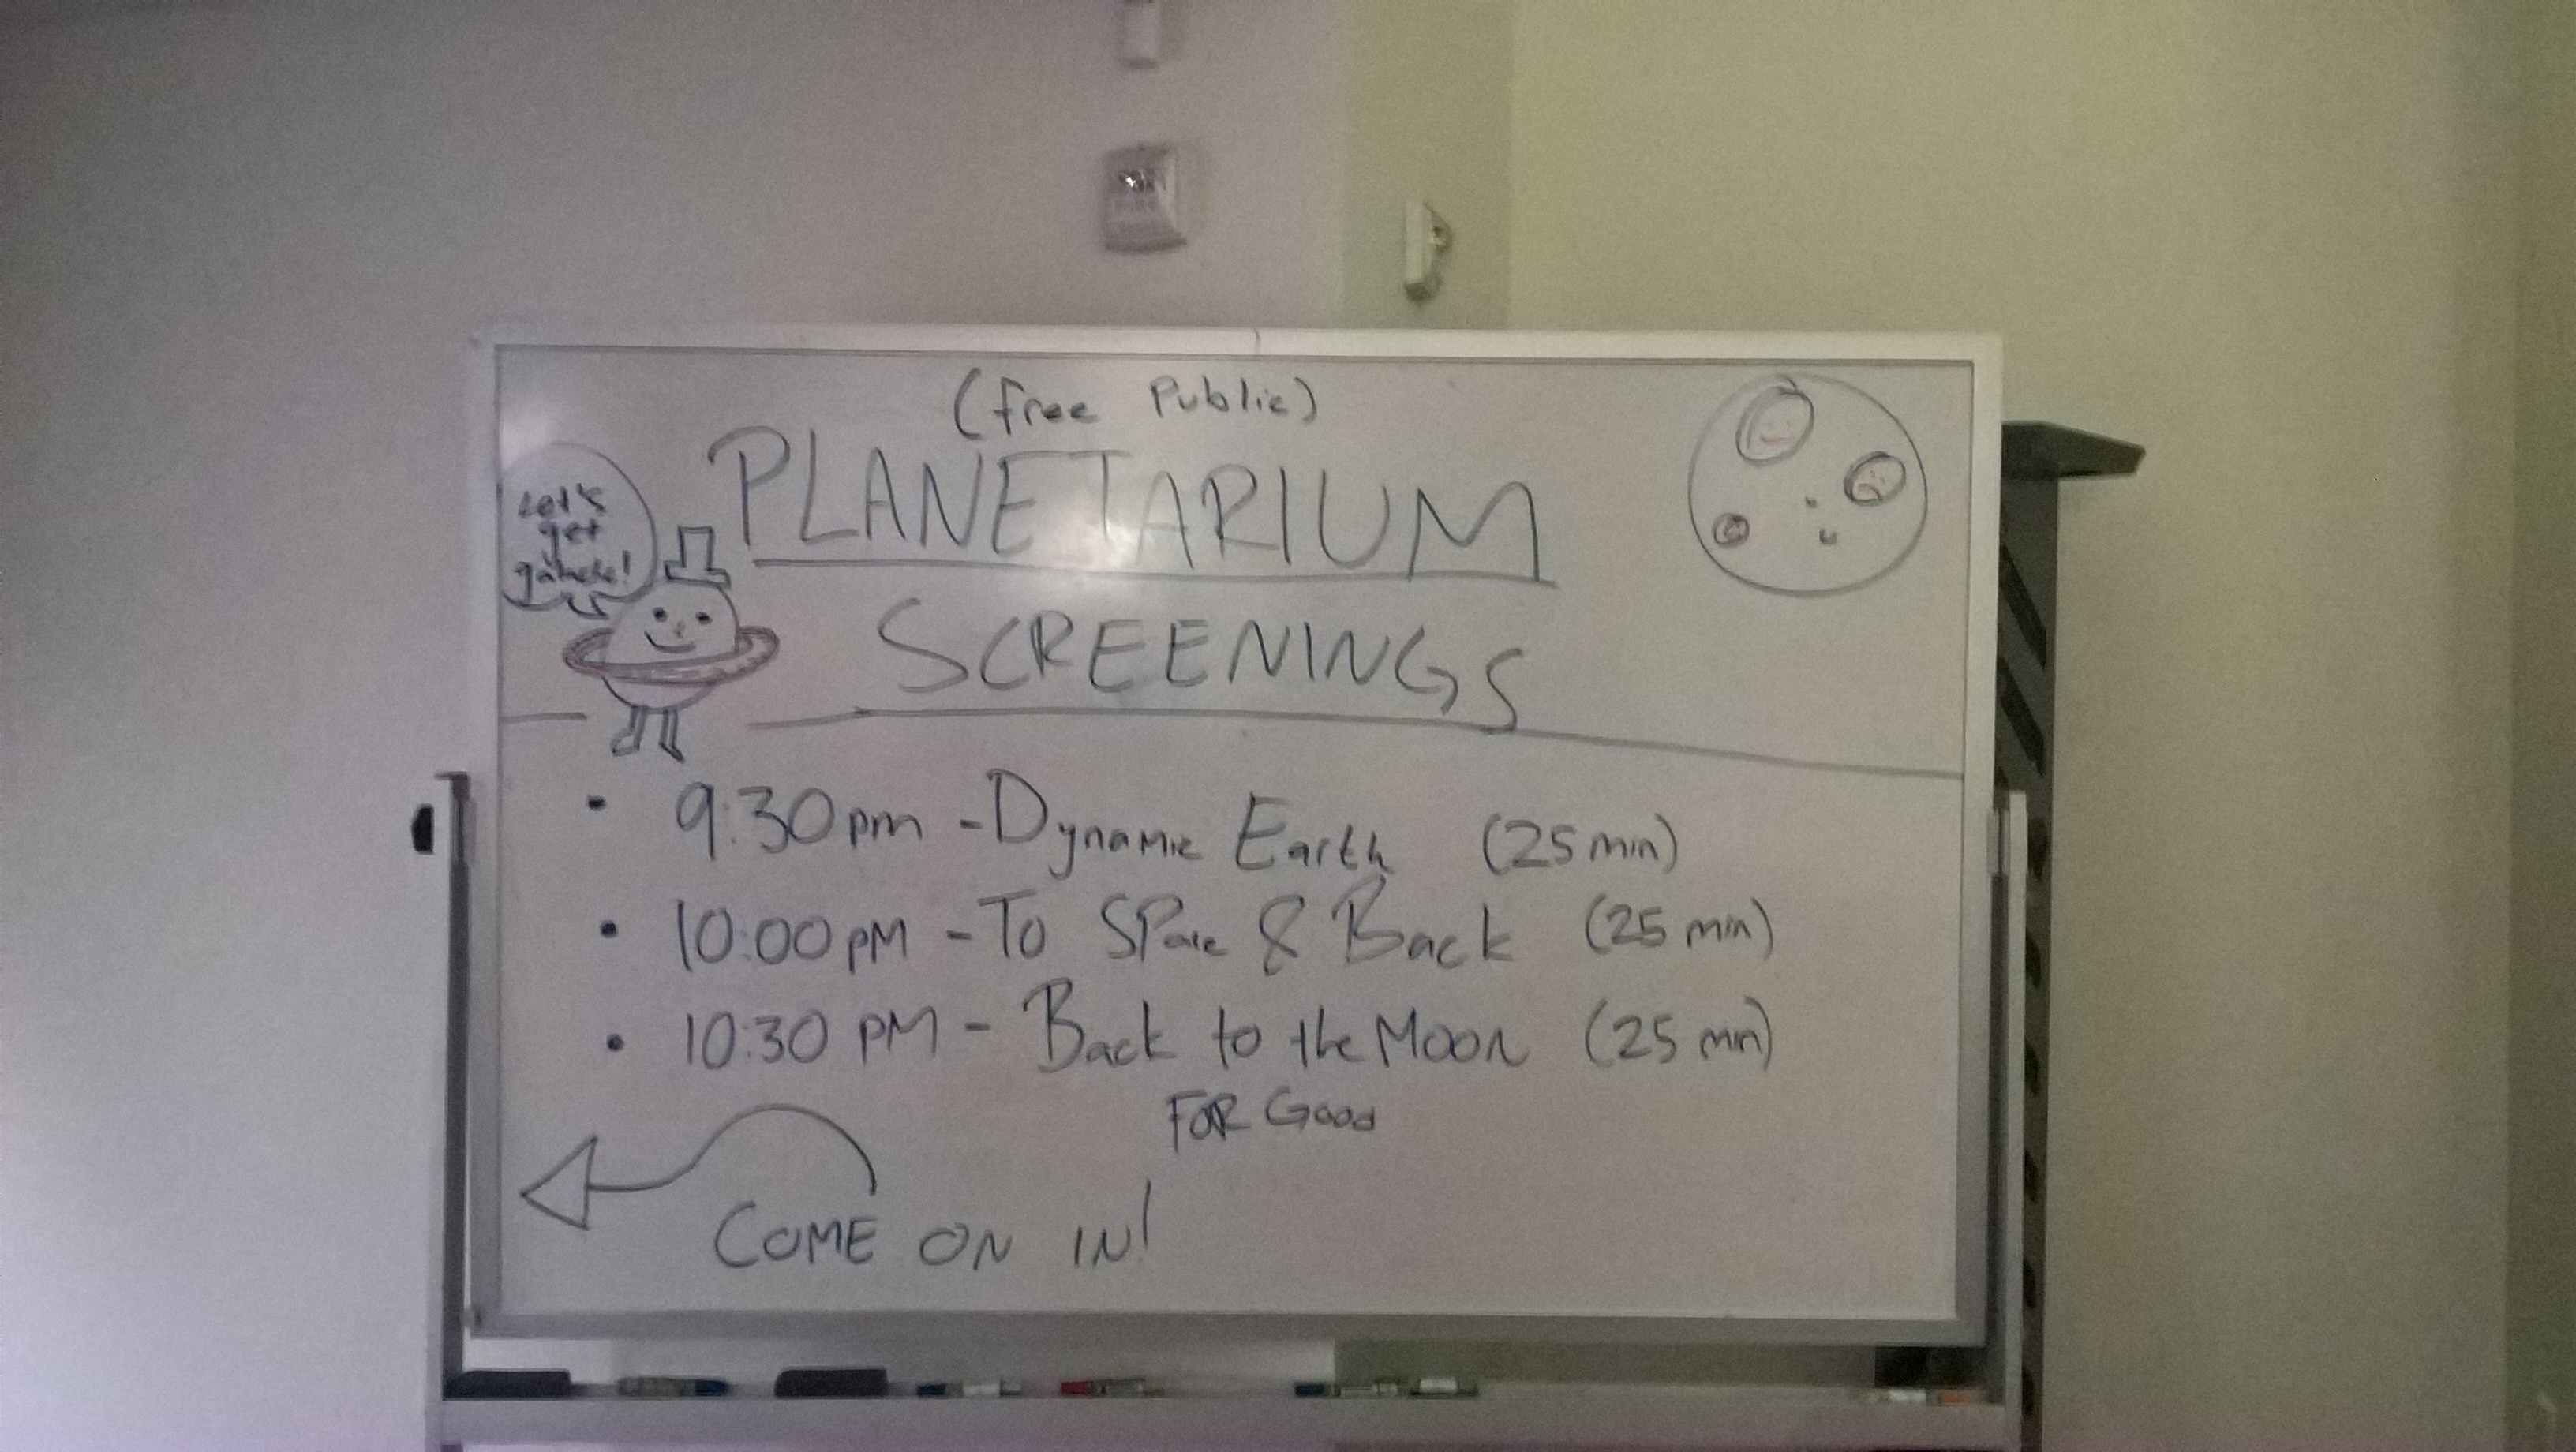 (free Public)
PLANETARIUM
SCREENINGS
Let's
get
• 9:30pm - Dynamic Earth (25 min)
• 10:00pm - To Space & Back (25 min)
• 10:30 PM - Back to the Moon (25 min)
FOR Good
COME ON IN!